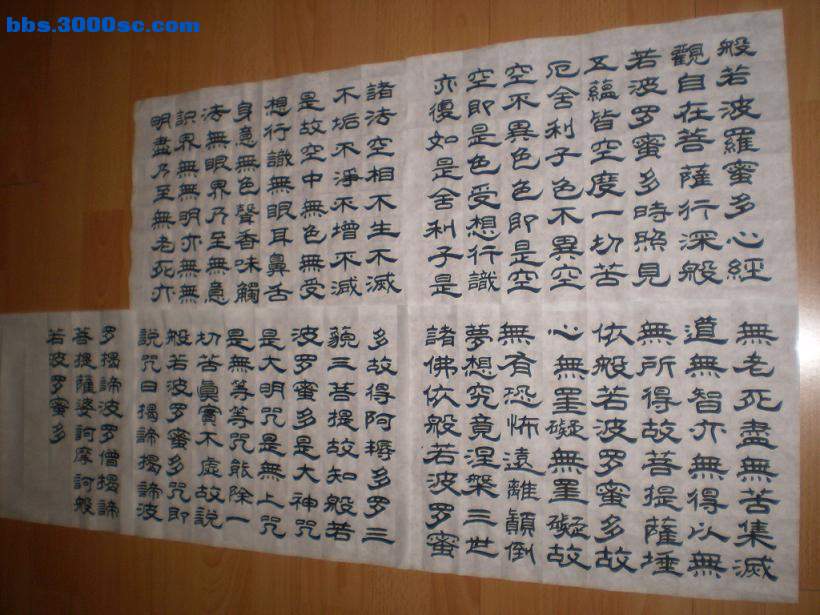 bbs.3000sc.com
般若波羅蜜多心經
觀自在菩薩行深般
若波罗蜜多時照見
五蘊皆空度一切苦
厄舍利子色不異空
空不異色色即是空
空即是色受想行識
亦復如是舍利子是
諸法空相不生不滅
不垢不淨不增不減
是故空中無色無受
想行識無眼耳鼻舌
身意無色聲香味觸
法無眼界乃至無意
識界無無明亦無無
明盡乃至無老死亦
無老死盡無苦集滅
道無智亦無得以無
無所得故菩提薩埵
依般若波罗蜜多故
心無罣礙無罣礙故
無有恐怖遠離顛倒
夢想究竟涅槃三世
諸佛依般若波罗蜜
多故得阿耨多罗三
藐三菩提故知般若
波罗蜜多是大神咒
是大明咒是無上咒
是無等等咒能除一
切苦真實不虛故說
般若波罗蜜多咒即
說咒曰揭諦揭諦波
罗揭諦波罗僧揭諦
菩提薩婆訶摩訶般
若波罗蜜多